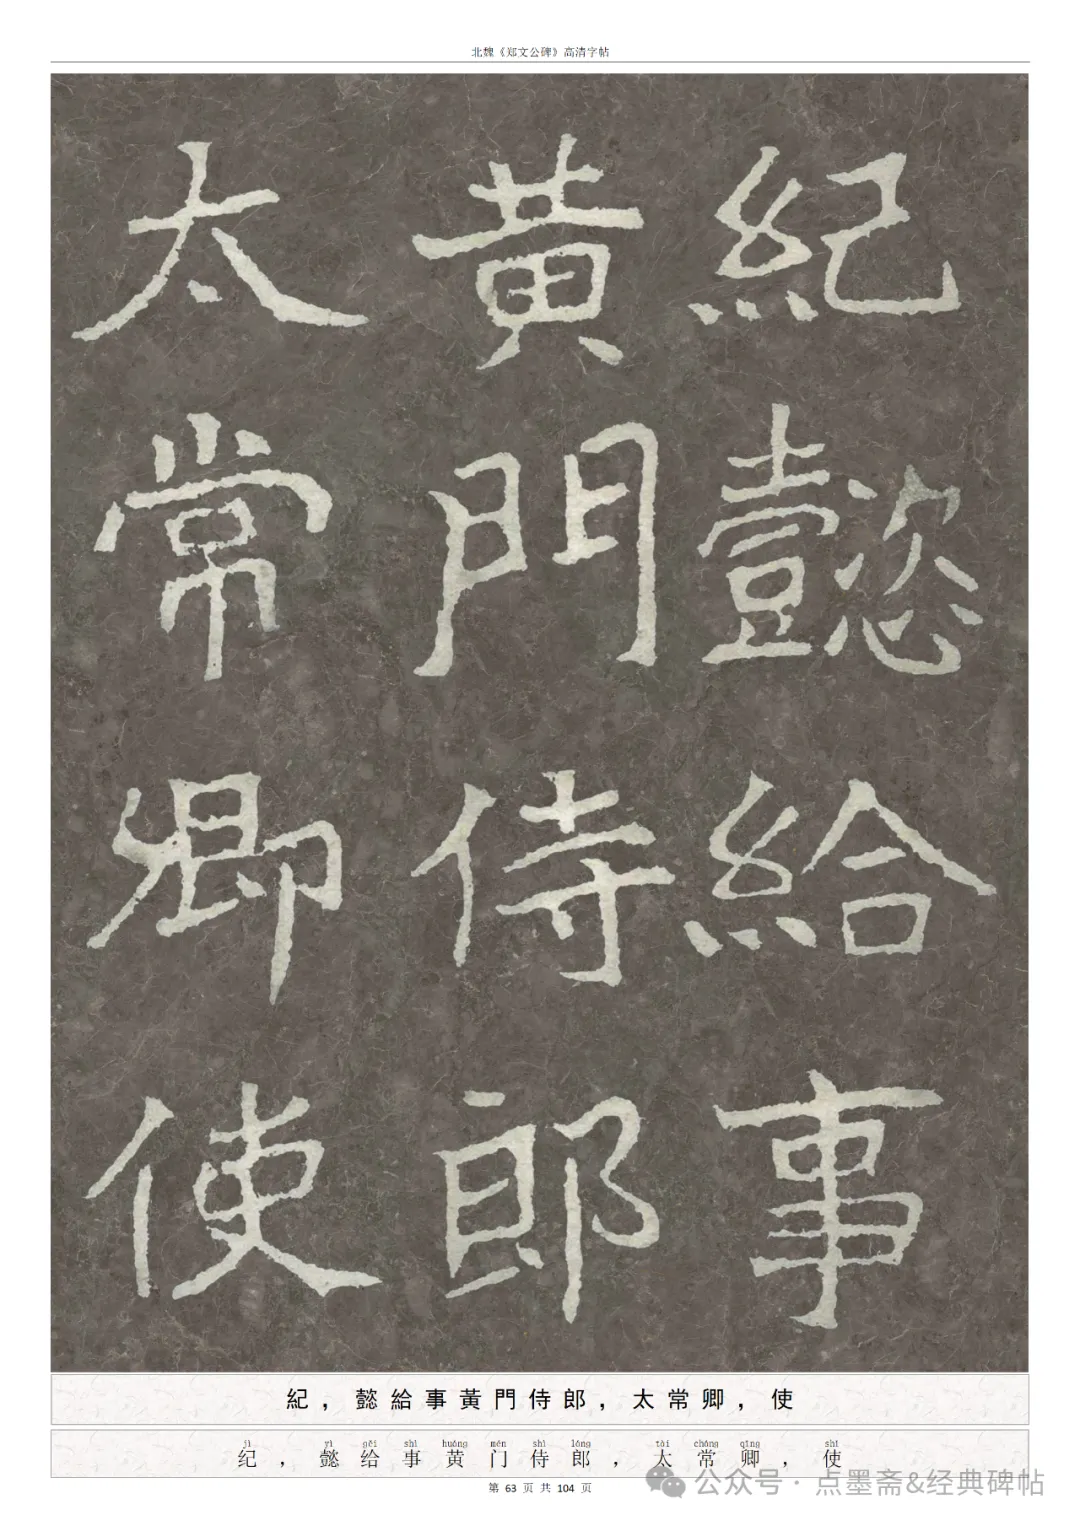 北魏《郑文公碑》高清字帖
紀懿給事
黃門侍郎
太常卿使
紀，懿給事黃門侍郎，太常卿，使
jì yì gěi shì huáng mén shì láng tài cháng qīng shǐ
纪，懿给事黄门侍郎，太常卿，使
第 63 页 共 104 页
公众号 · 点墨斋&经典碑帖